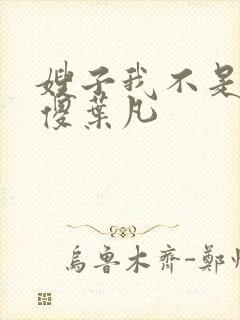 嫂子我不是
傻葉凡
烏魯木齊-鄭州